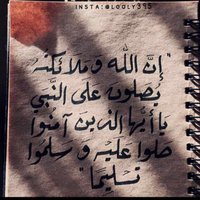 INSTA:@LOOLY395
"إنَّ اللَّه وملَائكتَهُ
يُصلون على النَّبي
يَا أيُّها الذين آمنُوا
صلوا عليْهِ و سلمُوا
تسْليمًا"